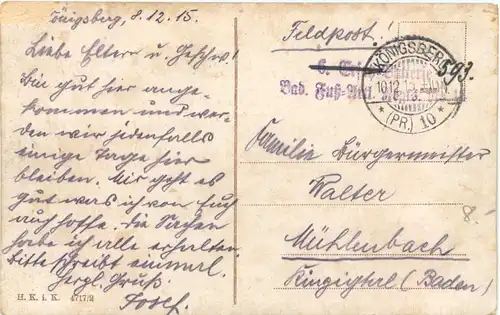 Königsberg, 8.12.15.
Liebe Eltern u. Geschw!
Bin gut hier ange
kommen und wer-
den wir jedenfalls
einige Tage hier
bleiben. Mir geht es
gut was ich von Euch
auch hoffe. Die Sachen
habe ich alle erhalten.
Bitte schreibt einmal.
Herzl. Gruß.
Josef.
H. K. i. K. 4717/2
Feldpost!
Bad. Fuß-Art.
KÖNIGSBERG
* (PR.) 10 *
593.
Familie Bürgermeister
Walter
Mühlenbach
Kinzigtal (Baden)
8.-